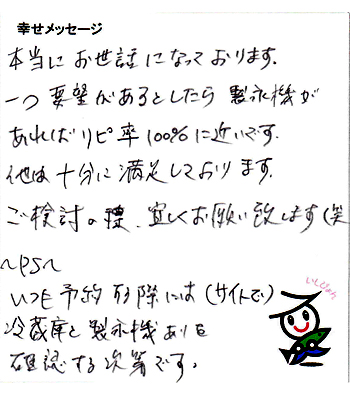 幸せメッセージ
本当にお世話になっております。
一つ要望があるとしたら製氷機が
あればリピ率100%に近いです。
他は十分に満足しております。
ご検討の程、宜しくお願い致します(笑
~PS~
いつも予約する際には(サイトで)
冷蔵庫と製氷機ありを
確認する次第です。